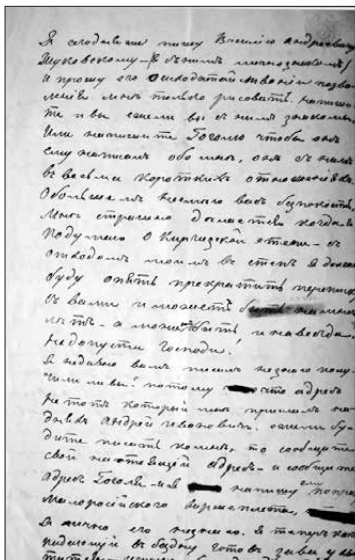 Я сегодня же пишу Василію Андреевичу
Жуковскому (я съ нимъ лично знакомъ)
и прошу его о исходатайствованіи позво
ленія мнѣ только рисовать. Напиши
те и вы, ежели вы съ нимъ знакомы.
Или напишите Гоголю чтобы онъ
ему написалъ обо мнѣ, онъ съ нимъ
въ весьма короткихъ отношеніяхъ.
О большемъ не смѣю васъ безпокоить.
Мнѣ страшно дѣлается когда я
подумаю о Киргизской степи. Съ
отходомъ моимъ въ степь я долженъ
буду опять прекратить переписку
съ вами и можетъ быть на много
лѣтъ - а можетъ быть и навсегда.
Недопусти Господи.
Я недавно вамъ писалъ незнаю полу-
чили ли вы? потому что адресъ
не тотъ который мнѣ прислалъ на
дняхъ Андрей Ивановичь. ежели бу-
дите писать комнѣ, то сообщите
свой настоящій адресъ - и сообщите
адресъ Гоголя и я напишу ему по праву
малороссійского виршеплета,
я лично его незнаю. Я теперь какъ
падающій въ бездну готовъ за все ухва